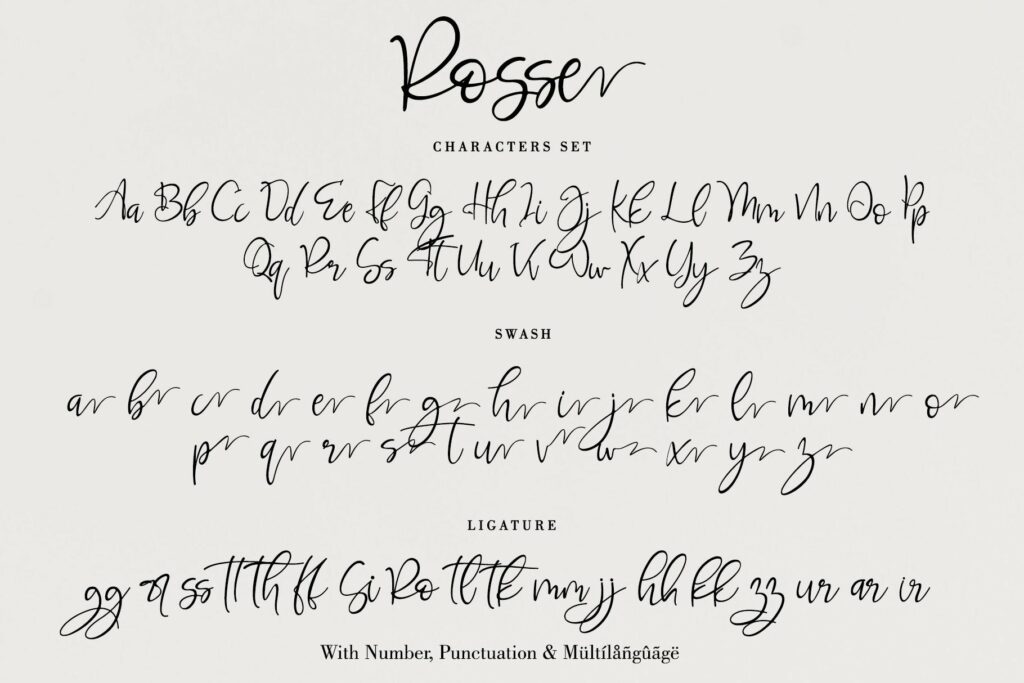 Rosser
CHARACTERS SET
Aa Bb Cc Dd Ee Ff Gg Hh Ii Jj Kk Ll Mm Nn Oo Pp
Qq Rr Ss Tt Uu Vv Ww Xx Yy Zz
SWASH
ar br cr dr er fr gr hr ir jr kr lr mr nr or
pr qr rr sr t ur vr wr xr yr zr
LIGATURE
gg ss tt th ff Si Ro tl tk mm jj hh kk zz ur ar ir
With Number, Punctuation & Mültílåñgûãgë